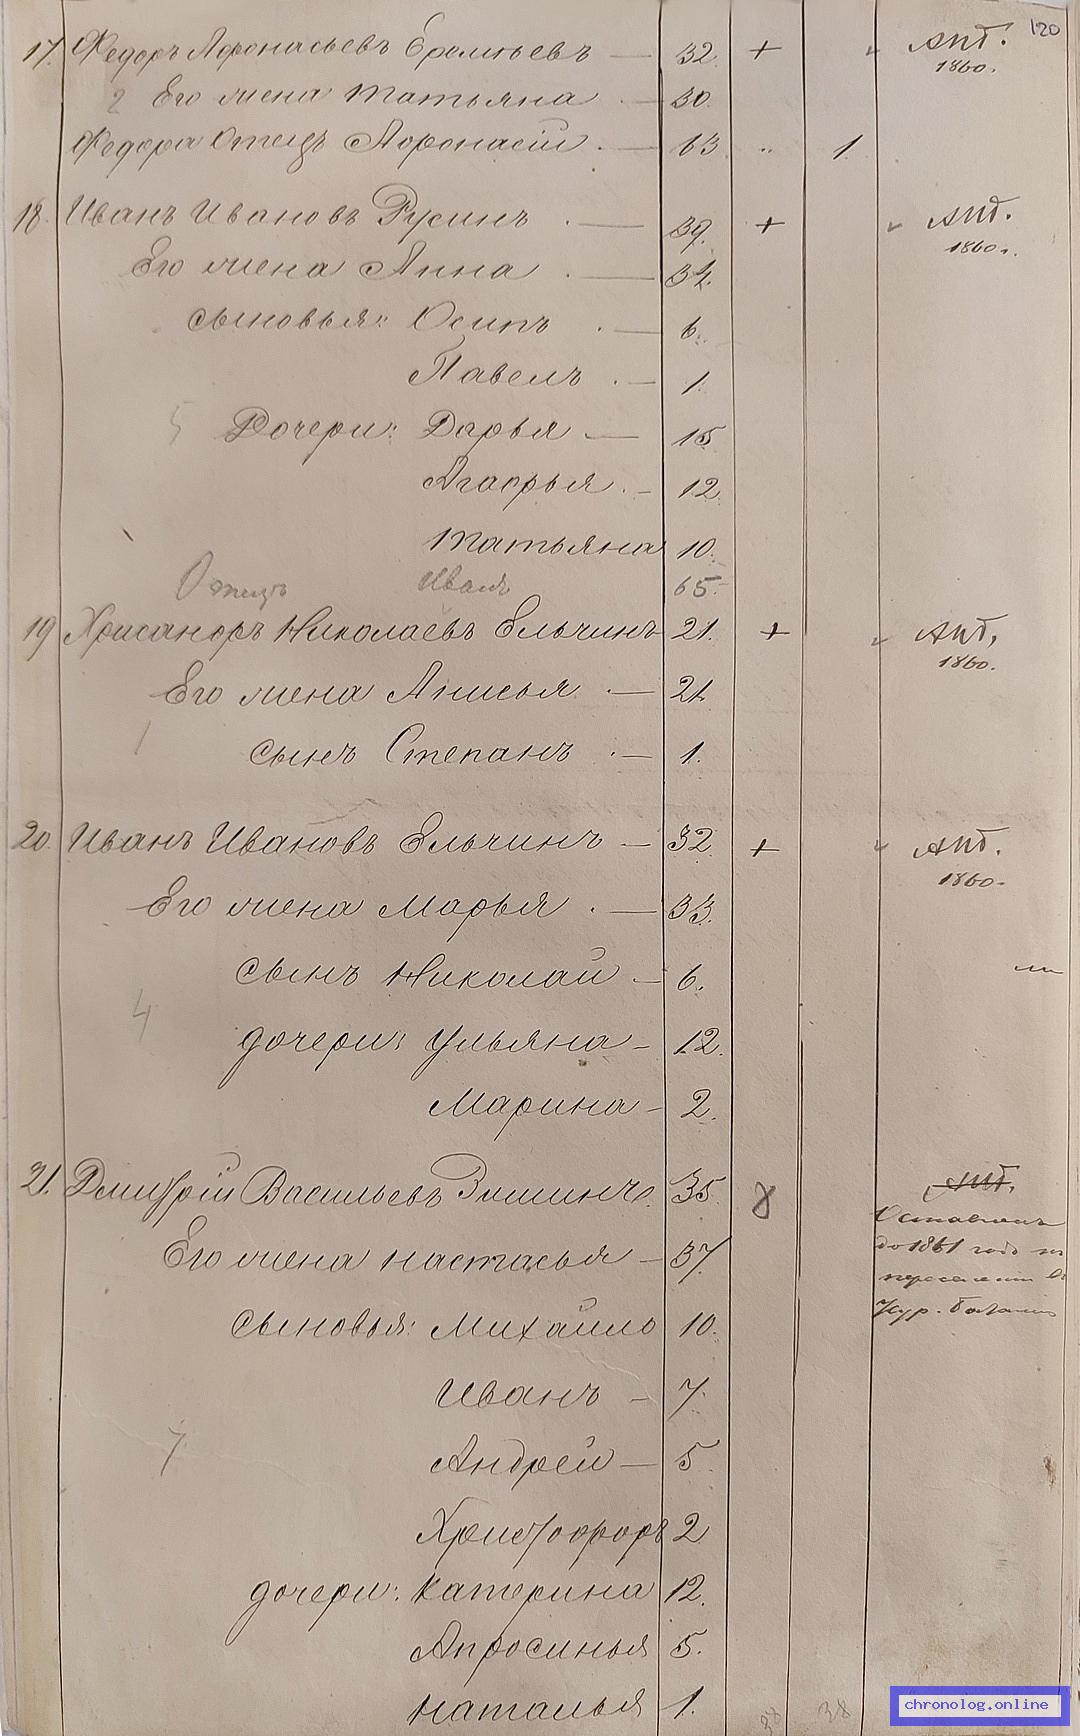 120
17. Федоръ Афонасьевъ Еремѣевъ — 32. + Апб. 1860.
2 Его жена Татьяна . — 30.
Федора Отецъ Афонасій . — 63 " 1.
18. Иванъ Ивановъ Русинъ . — 39. + Апб. 1860 г.
Его жена Анна . — 34.
сыновья: Осипъ . — 6.
Павелъ . — 1.
5 Дочери: Дарья — 15
Агафья . — 12.
Татьяна 10.
Отецъ Иванъ 65.
19 Хрисанфъ Николаевъ Ельчинъ 21. + Апб. 1860.
Его жена Анисья . — 21.
1 сынъ Степанъ . — 1.
20. Иванъ Ивановъ Ельчинъ — 32. + Апб. 1860.
Его жена Марья . — 33.
сынъ Николай — 6.
4 дочери: Ульяна — 12.
Марина — 2.
21. Дмитрій Васильевъ Зиминъ. 35. 8 Апб.
до 1861 года
Его жена Настасья — 37.
сыновья: Михайло 10.
Иванъ — 7.
7 Андрей — 5.
Христофоръ 2
дочери: Катерина 12.
Апросинья 5.
Наталья 1. 38 38
chronolog.online